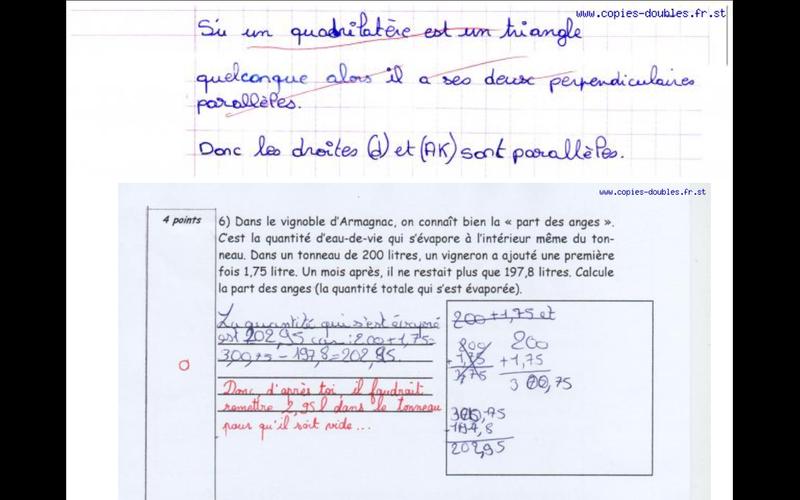 www.copies-doubles.fr.st
Si un quadrilatère est un triangle
quelconque alors il a ses deux perpendiculaires
parallèles.
Donc les droites (d) et (AK) sont parallèles.
www.copies-doubles.fr.st
4 points
6) Dans le vignoble d'Armagnac, on connaît bien la « part des anges ».
C'est la quantité d'eau-de-vie qui s'évapore à l'intérieur même du ton-
neau. Dans un tonneau de 200 litres, un vigneron a ajouté une première
fois 1,75 litre. Un mois après, il ne restait plus que 197,8 litres. Calcule
la part des anges (la quantité totale qui s'est évaporée).
La quantité qui s'est évaporé
est 202,95 car : 200+1,75=
300,75 - 197,8 = 202,95.
0
Donc, d'après toi, il faudrait
remettre 2,95 l dans le tonneau
pour qu'il soit vide...
200 + 1,75 et
200
+ 1,75
200
+ 1,75
300,75
300,75
- 197,8
202,95